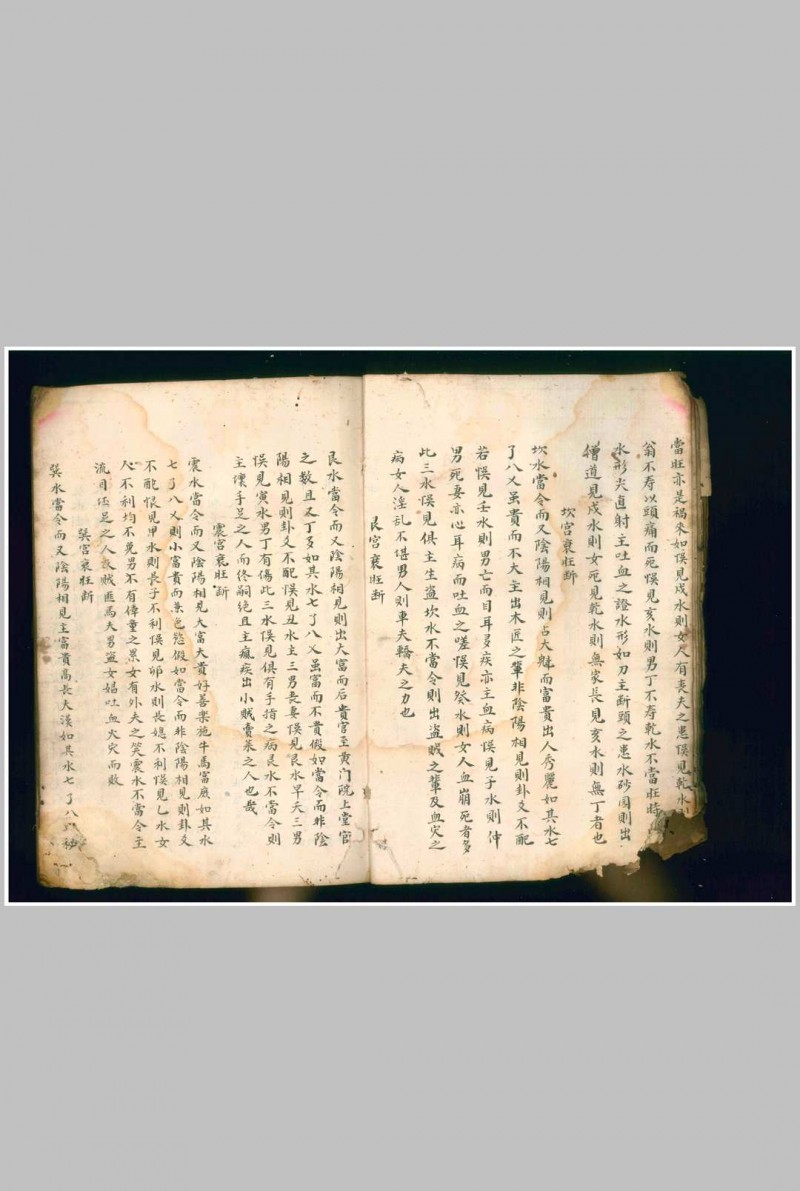 當旺亦是禍來如悮見戌水則女人有丧夫之患悮見乾水
翁不寿以頭痛而死悮見亥水則男丁不寿乾水不當旺時
水形尖直射主吐血之證水形如刀主断頭之患水砂圓則出
僧道見戌水則女死見乾水則無家長見亥水則無丁者也
坎宫衰旺断
坎水當令而又陰陽相見則占大縣而富貴出人秀麗如其水七
了八乂虽貴而不大主出木匠之軰非陰陽相見則卦爻不配
若悮見壬水則男亡而目耳多疾亦主血病悮見子水則仲
男死妻亦心耳病而吐血之嗟悮見癸水則女人血崩死者多
此三水悮見俱主生盗坎水不當令則出盗贼之軰及血灾之
病女人淫乱不堪男人则車夫轎夫之力也
艮宫衰旺断
艮水當令而又陰陽相見則出大富而后貴官至黄门院上堂官
之数且又丁多如其水七了八乂虽富而不貴假如當令而非陰
陽相見則卦爻不配悮見丑水主三男丧妻悮見艮水早夭三男
悮見寅水男丁有傷此三水悮見俱有手指之病艮水不當令則
主壞手足之人而佟嗣绝且主瘋疾出小贼賣菜之人也哉
震宫衰旺断
震水當令而又陰陽相見大富大貴好善樂施牛馬富庶如其水
七了八乂則小富貴而兼色慾假如當令而非陰陽相見則卦爻
不配悮見甲水則長子不利悮見卯水則長媳不利悮見乙水女
人不利均不免男不有俥童之累女有外夫之笑震水不當令主
流目征足之人敌贼匪馬夫男盗女娼吐血火灾而敗
巽宫衰旺断
巽水當令而又陰陽相見主富貴高長大漢如其水七了八乂